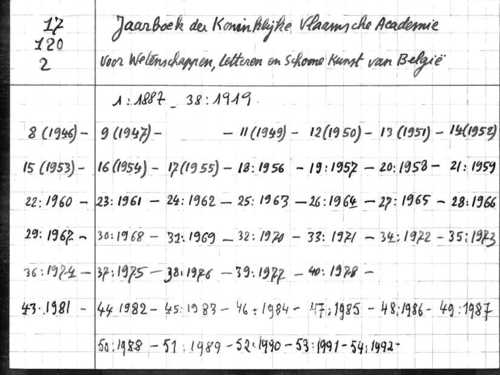 17 Jaarboek der Koninklijke Vlaamsche Academie
120
2 voor Wetenschappen, Letteren en Schone Kunst van België
1:1887 - 38:1919.
8 (1946) - 9 (1947) - - 11 (1949) - 12 (1950) - 13 (1951) - 14 (1952)
15 (1953) - 16 (1954) - 17 (1955) - 18:1956 - 19:1957 - 20:1958 - 21:1959
22:1960 - 23:1961 - 24:1962 - 25:1963 - 26:1964 - 27:1965 - 28:1966
29:1967 - 30:1968 - 31:1969 - 32:1970 - 33:1971 - 34:1972 - 35:1973
36:1974 - 37:1975 - 38:1976 - 39:1977 - 40:1978 -
43:1981 - 44 1982 - 45:1983 - 46:1984 - 47:1985 - 48:1986 - 49:1987
50:1988 - 51:1989 - 52:1990 - 53:1991 - 54:1992 -